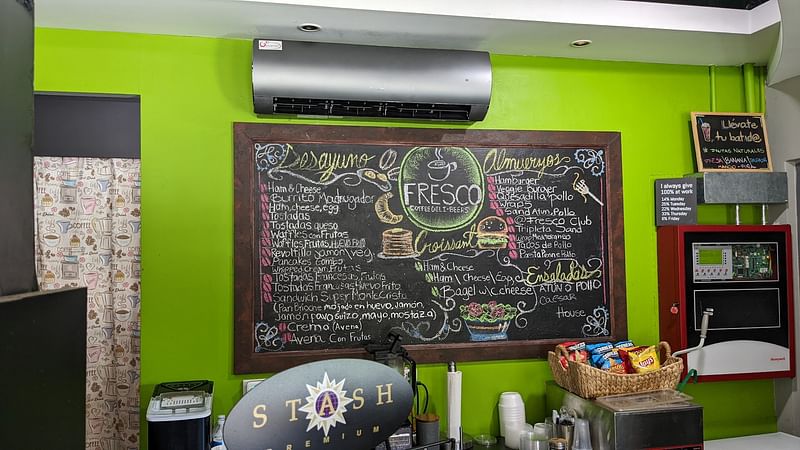 Desayuno
Ham & Cheese
Burrito Madrugador
Ham, cheese, egg
Tostadas
Tostadas queso
Waffles con Frutas
Waffles, Frutas, Huevo Frito
Revoltillo Jamon, veg.
Pancakes combo
Whipped Cream, Frutas
Tostadas Francesas, Frutas
Tostadas Francesas, Huevo Frito
Sandwich Super MonteCristo
(Pan Brioche mojado en huevo, Jamón,
Jamón pavo, suizo, mayo, mostaza)
Crema (Avena)
Avena Con Frutas
FRESCO
COFFEE·DELI·BEERS
Croissant
Ham & Cheese
Ham / cheese / egg
Bagel w/c.cheese
Almuerzos
Hamburger
Veggie Burger
Quesadilla Pollo
Wraps
Sand Atun, Pollo
@ Fresco Club
Tripleta Sand
Tacos de Pollo
Pasta Penne Pollo
Ensaladas
ATÚN O POLLO
Caesar
House
Llévate
tu batid@
# FRUTAS NATURALES
FRESA BANANA
MANGO - PIÑA
I always give
100% at work
14% Monday
25% Tuesday
22% Wednesday
33% Thursday
6% Friday
Honeywell
Lay's
STASH
PREMIUM